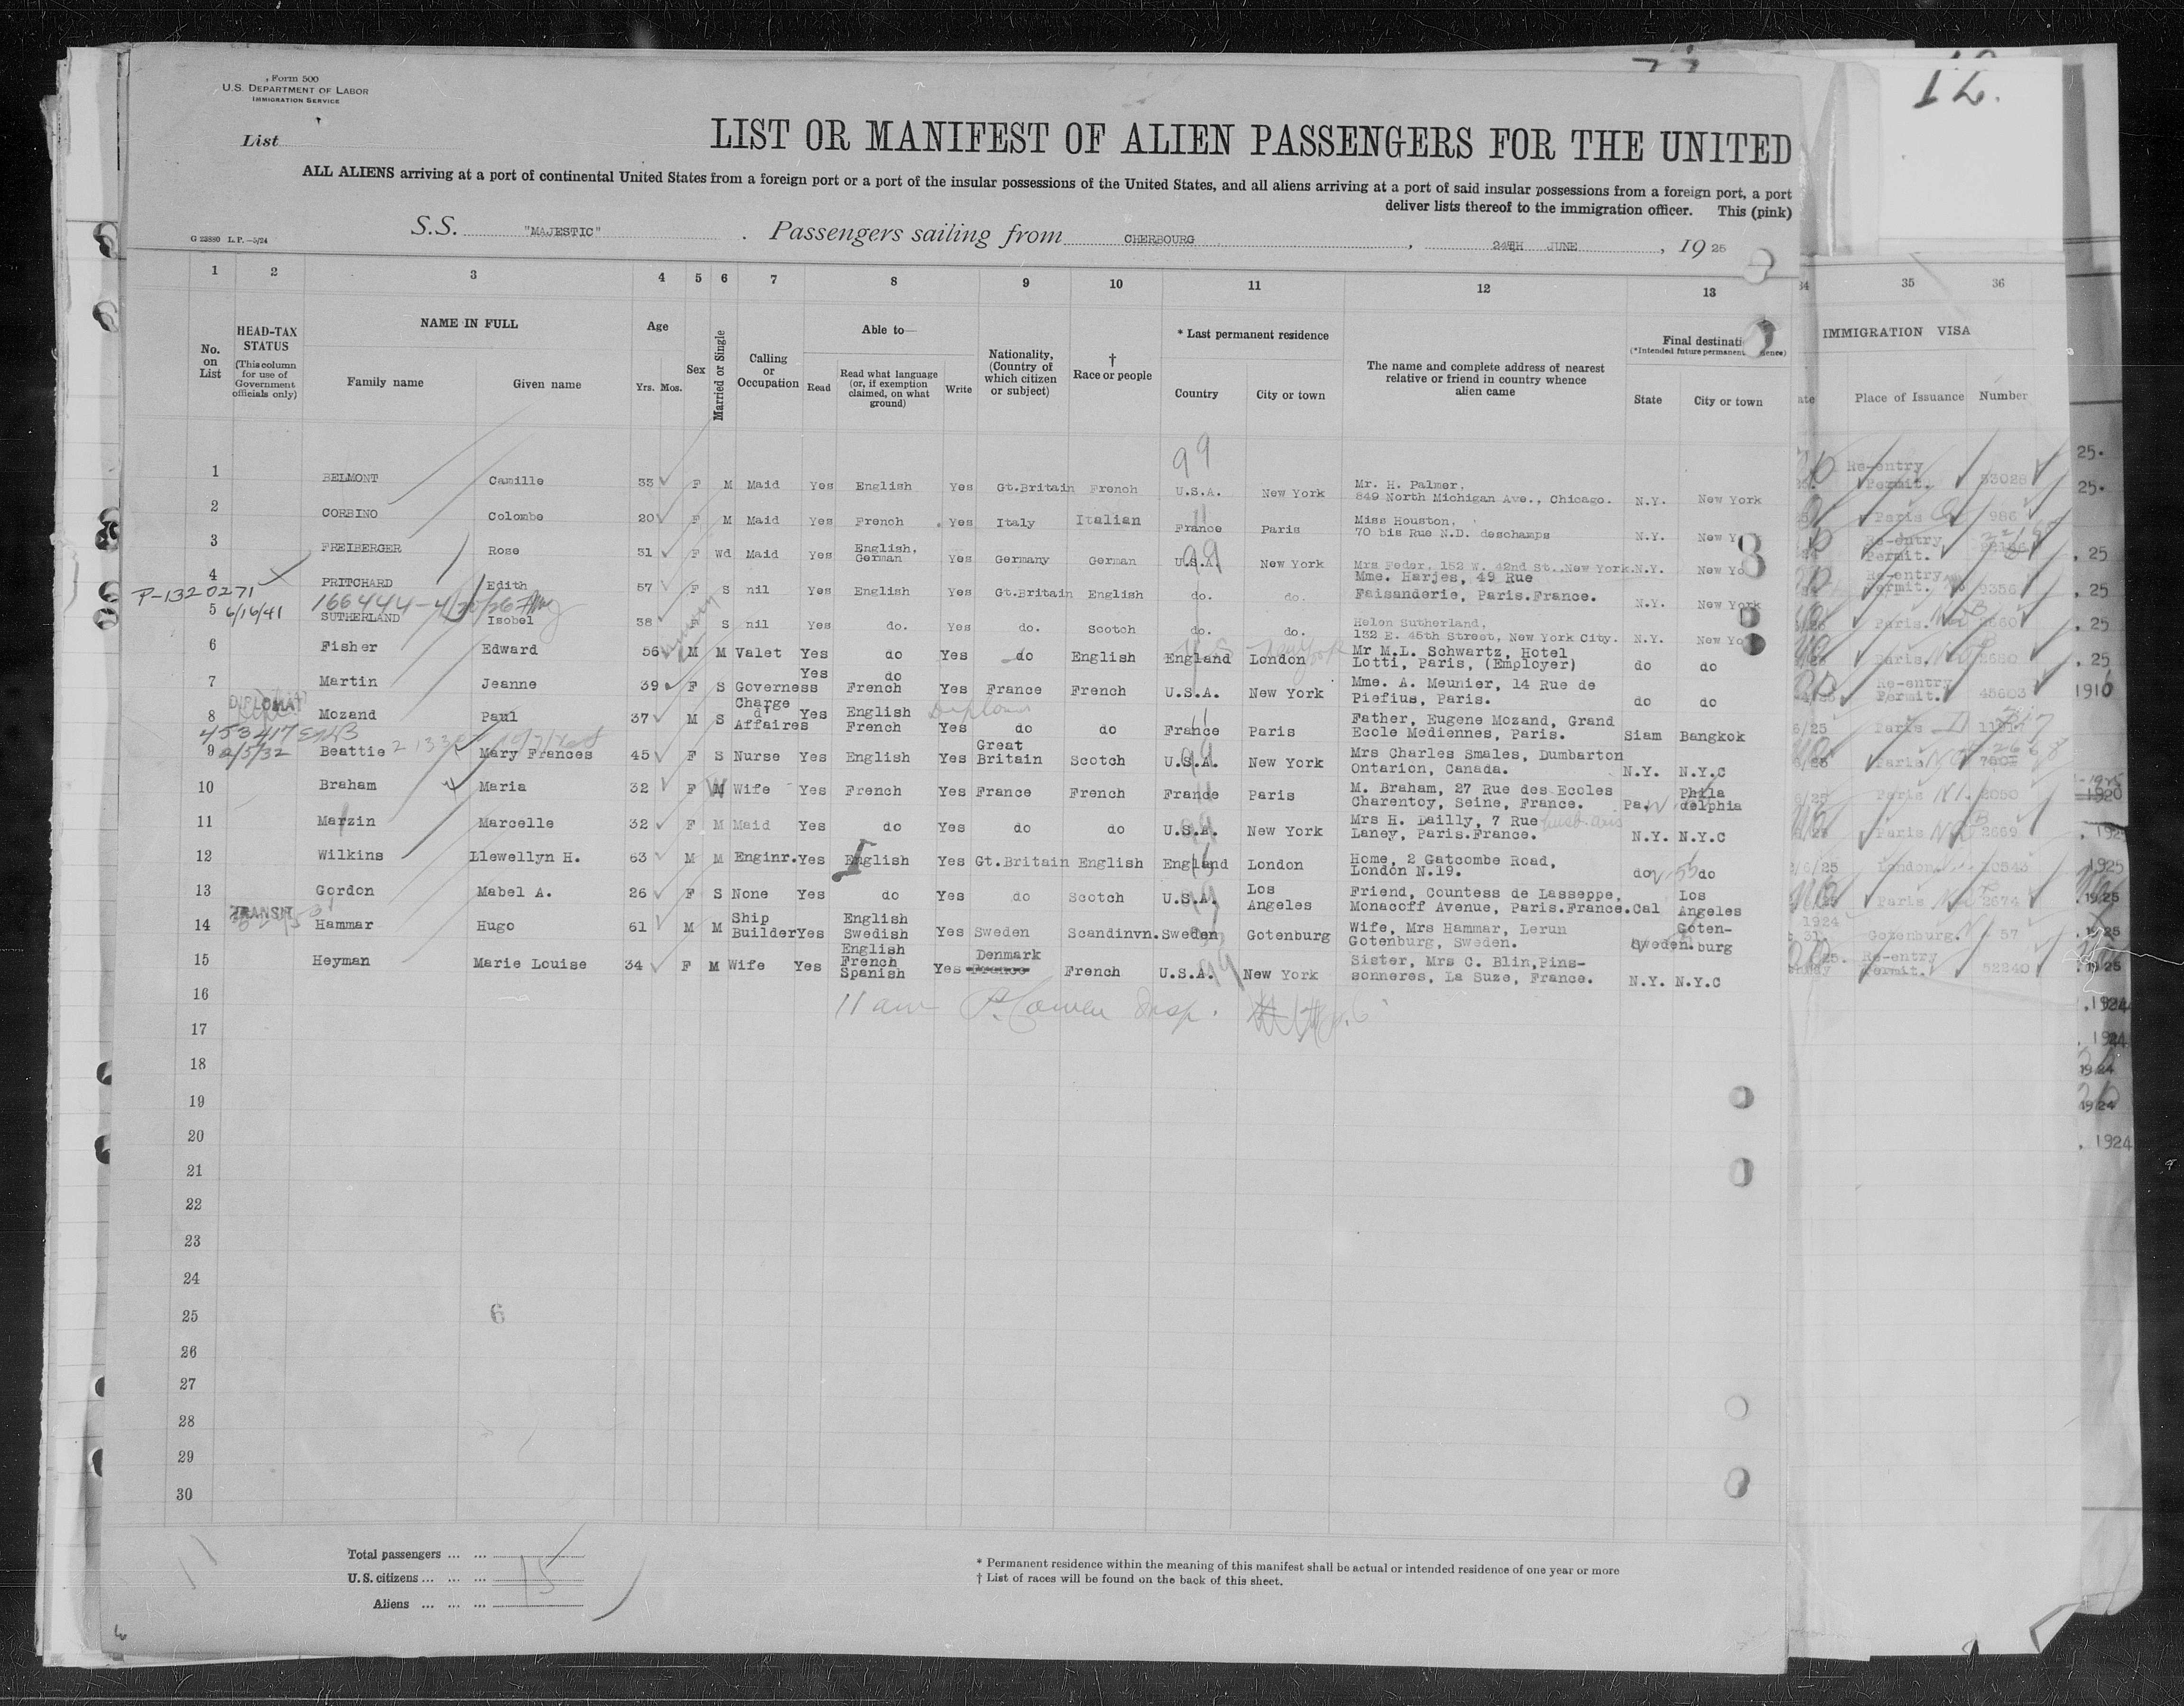 Form 500
U.S. DEPARTMENT OF LABOR
IMMIGRATION SERVICE
12.
List
LIST OR MANIFEST OF ALIEN PASSENGERS FOR THE UNITED
ALL ALIENS arriving at a port of continental United States from a foreign port or a port of the insular possessions of the United States, and all aliens arriving at a port of said insular possessions from a foreign port, a port
deliver lists thereof to the immigration officer. This (pink)
G 23880 L.P.—5/24
S.S. "MAJESTIC" . Passengers sailing from CHERBOURG , 24TH JUNE , 19 25
1 2 3 4 5 6 7 8 9 10 11 12 13 34 35 36
No. on List
HEAD-TAX STATUS (This column for use of Government officials only)
NAME IN FULL
Family name Given name
Age
Yrs. Mos.
Sex
Married or Single
Calling or Occupation
Able to—
Read
Read what language (or, if exemption claimed, on what ground)
Write
Nationality, (Country of which citizen or subject)
† Race or people
* Last permanent residence
Country City or town
The name and complete address of nearest relative or friend in country whence alien came
Final destinati
(*Intended future permanent dence)
State City or town
IMMIGRATION VISA
ate Place of Issuance Number
99
1 BELMONT Camille 33 F M Maid Yes English Yes Gt.Britain French U.S.A. New York Mr. H. Palmer, 849 North Michigan Ave., Chicago. N.Y. New York Re-entry Permit. 53028
2 CORBINO Colombe 20 F M Maid Yes French Yes Italy Italian France Paris Miss Houston, 70 bis Rue N.D. deschamps N.Y. New Y Paris 986
3 FREIBERGER Rose 31 F Wd Maid Yes English, German Yes Germany German U.S.A. New York Mrs Feder, 152 W. 42nd St., New York. N.Y. New Yo Re-entry Permit.
4 PRITCHARD Edith 57 F S nil Yes English Yes Gt.Britain English do. do. Mme. Harjes, 49 Rue Faisanderie, Paris.France. N.Y. New York Re-entry Permit.
P-1320271
6/16/41
166444-4/30/26
5 SUTHERLAND Isobel 38 F S nil Yes do. Yes do. Scotch do. do. Helen Sutherland, 132 E. 45th Street, New York City. N.Y. New Yo Paris.
6 Fisher Edward 56 M M Valet Yes do Yes do English England London Mr M.L. Schwartz, Hotel Lotti, Paris, (Employer) do do Paris. 2680
7 Martin Jeanne 39 F S Governess Yes do French Yes France French U.S.A. New York Mme. A. Meunier, 14 Rue de Piefius, Paris. do do Re-entry Permit. 45603
DIPLOMAT
8 Mozand Paul 37 M S Charge d' Affaires Yes English French Yes do do France Paris Father, Eugene Mozand, Grand Ecole Mediennes, Paris. Siam Bangkok Paris
453417
2/5/32
9 Beattie Mary Frances 45 F S Nurse Yes English Yes Great Britain Scotch U.S.A. New York Mrs Charles Smales, Dumbarton Ontarion, Canada. N.Y. N.Y.C Paris
10 Braham Maria 32 F M Wife Yes French Yes France French France Paris M. Braham, 27 Rue des Ecoles Charentoy, Seine, France. Pa. Phila delphia Paris 2050
11 Marzin Marcelle 32 F M Maid Yes do Yes do do U.S.A. New York Mrs H. Dailly, 7 Rue Laney, Paris.France. N.Y. N.Y.C Paris 2669
12 Wilkins Llewellyn H. 63 M M Enginr. Yes English Yes Gt.Britain English England London Home, 2 Gatcombe Road, London N.19. do do London
13 Gordon Mabel A. 26 F S None Yes do Yes do Scotch U.S.A. Los Angeles Friend, Countess de Lasseppe, Monacoff Avenue, Paris.France. Cal Los Angeles Paris 2674
TRANSIT
14 Hammar Hugo 61 M M Ship Builder Yes English Swedish Yes Sweden Scandinvn. Sweden Gotenburg Wife, Mrs Hammar, Lerun Gotenburg, Sweden. Sweden. Goten-burg Gotenburg. 57
15 Heyman Marie Louise 34 F M Wife Yes English French Spanish Yes Denmark France French U.S.A. New York Sister, Mrs C. Blin,Pins-sonneres, La Suze, France. N.Y. N.Y.C Re-entry Permit. 52240
16
17
18
19
20
21
22
23
24
25
6
26
27
28
29
30
Total passengers ... ...
U.S. citizens ... ... ... 15
Aliens ... ... ...
* Permanent residence within the meaning of this manifest shall be actual or intended residence of one year or more
† List of races will be found on the back of this sheet.